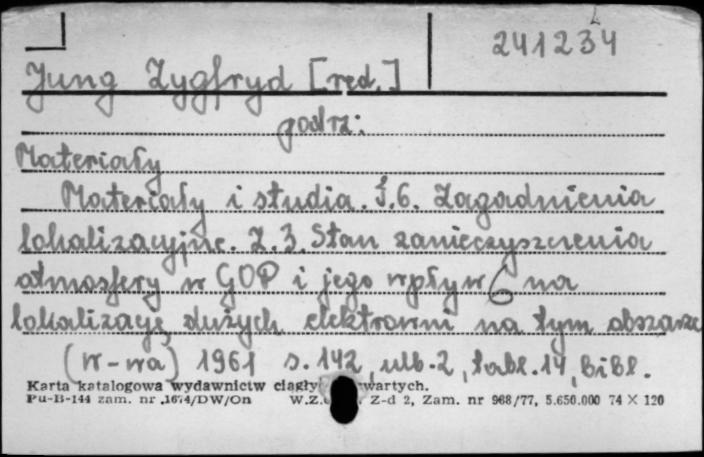 241234
Jung Zygfryd [red.]
podrz:
Materiały
Materiały i studia. S.6. Zagadnienia
lokalizacyjne. Z.3. Stan zanieczyszczenia
atmosfery w GOP i jego wpływ na
lokalizację dużych elektrowni na tym obszarze
(W-wa) 1961 s. 142, ulb. 2, tabl. 14, Bibl.
Karta katalogowa wydawnictw ciągły wartych.
Pu-B-144 zam. nr 1674/DW/On W.Z. Z-d 2, Zam. nr 968/77, 5.650.000 74 × 120